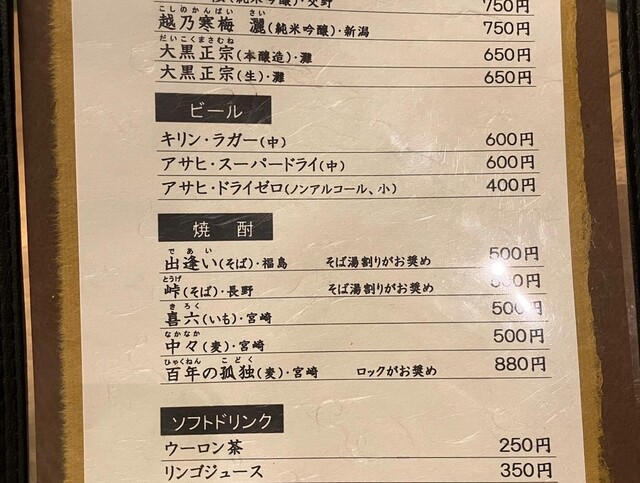 (純米吟醸)・交野 750円
こしのかんばい さい
越乃寒梅 灑(純米吟醸)・新潟 750円
だいこくまさむね
大黒正宗(本醸造)・灘 650円
大黒正宗(生)・灘 650円
ビール
キリン・ラガー(中) 600円
アサヒ・スーパードライ(中) 600円
アサヒ・ドライゼロ(ノンアルコール、小) 400円
焼酎
であい
出逢い(そば)・福島 そば湯割りがお奨め 500円
とうげ
峠(そば)・長野 そば湯割りがお奨め 00円
きろく
喜六(いも)・宮崎 500円
なかなか
中々(麦)・宮崎 500円
ひゃくねん こどく
百年の孤独(麦)・宮崎 ロックがお奨め 880円
ソフトドリンク
ウーロン茶 250円
リンゴジュース 350円